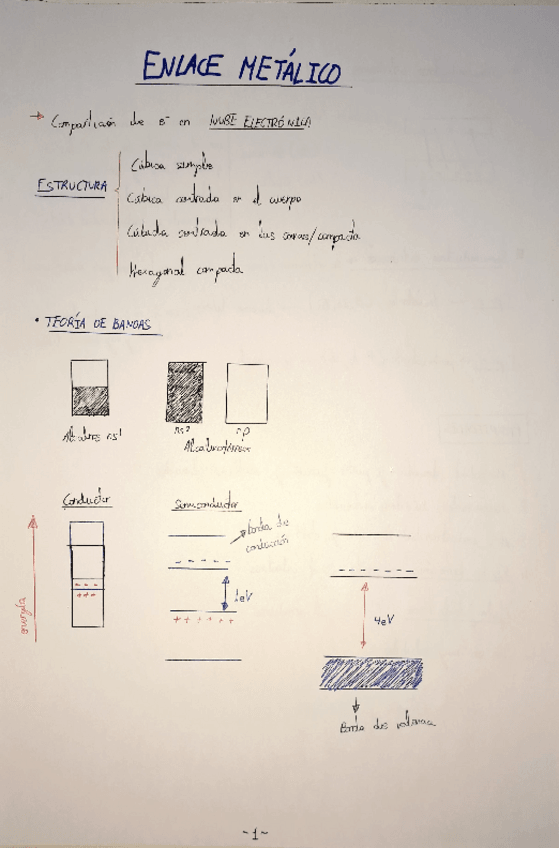 ENLACE METÁLICO
→ Compartición de e⁻ en NUBE ELECTRÓNICA
ESTRUCTURA
Cúbica simple
Cúbica centrada en el cuerpo
Cúbica centrada en las caras/compacta
Hexagonal compacta
• TEORÍA DE BANDAS
Alcalinos ns¹
ns²
np
Alcalinotérreos
Conductor
Semiconductor
energía
banda de
conducción
- - - - - -
- - - - - -
- - -
+ + +
1eV
+ + + + + +
4eV
Banda de valencia
~1~